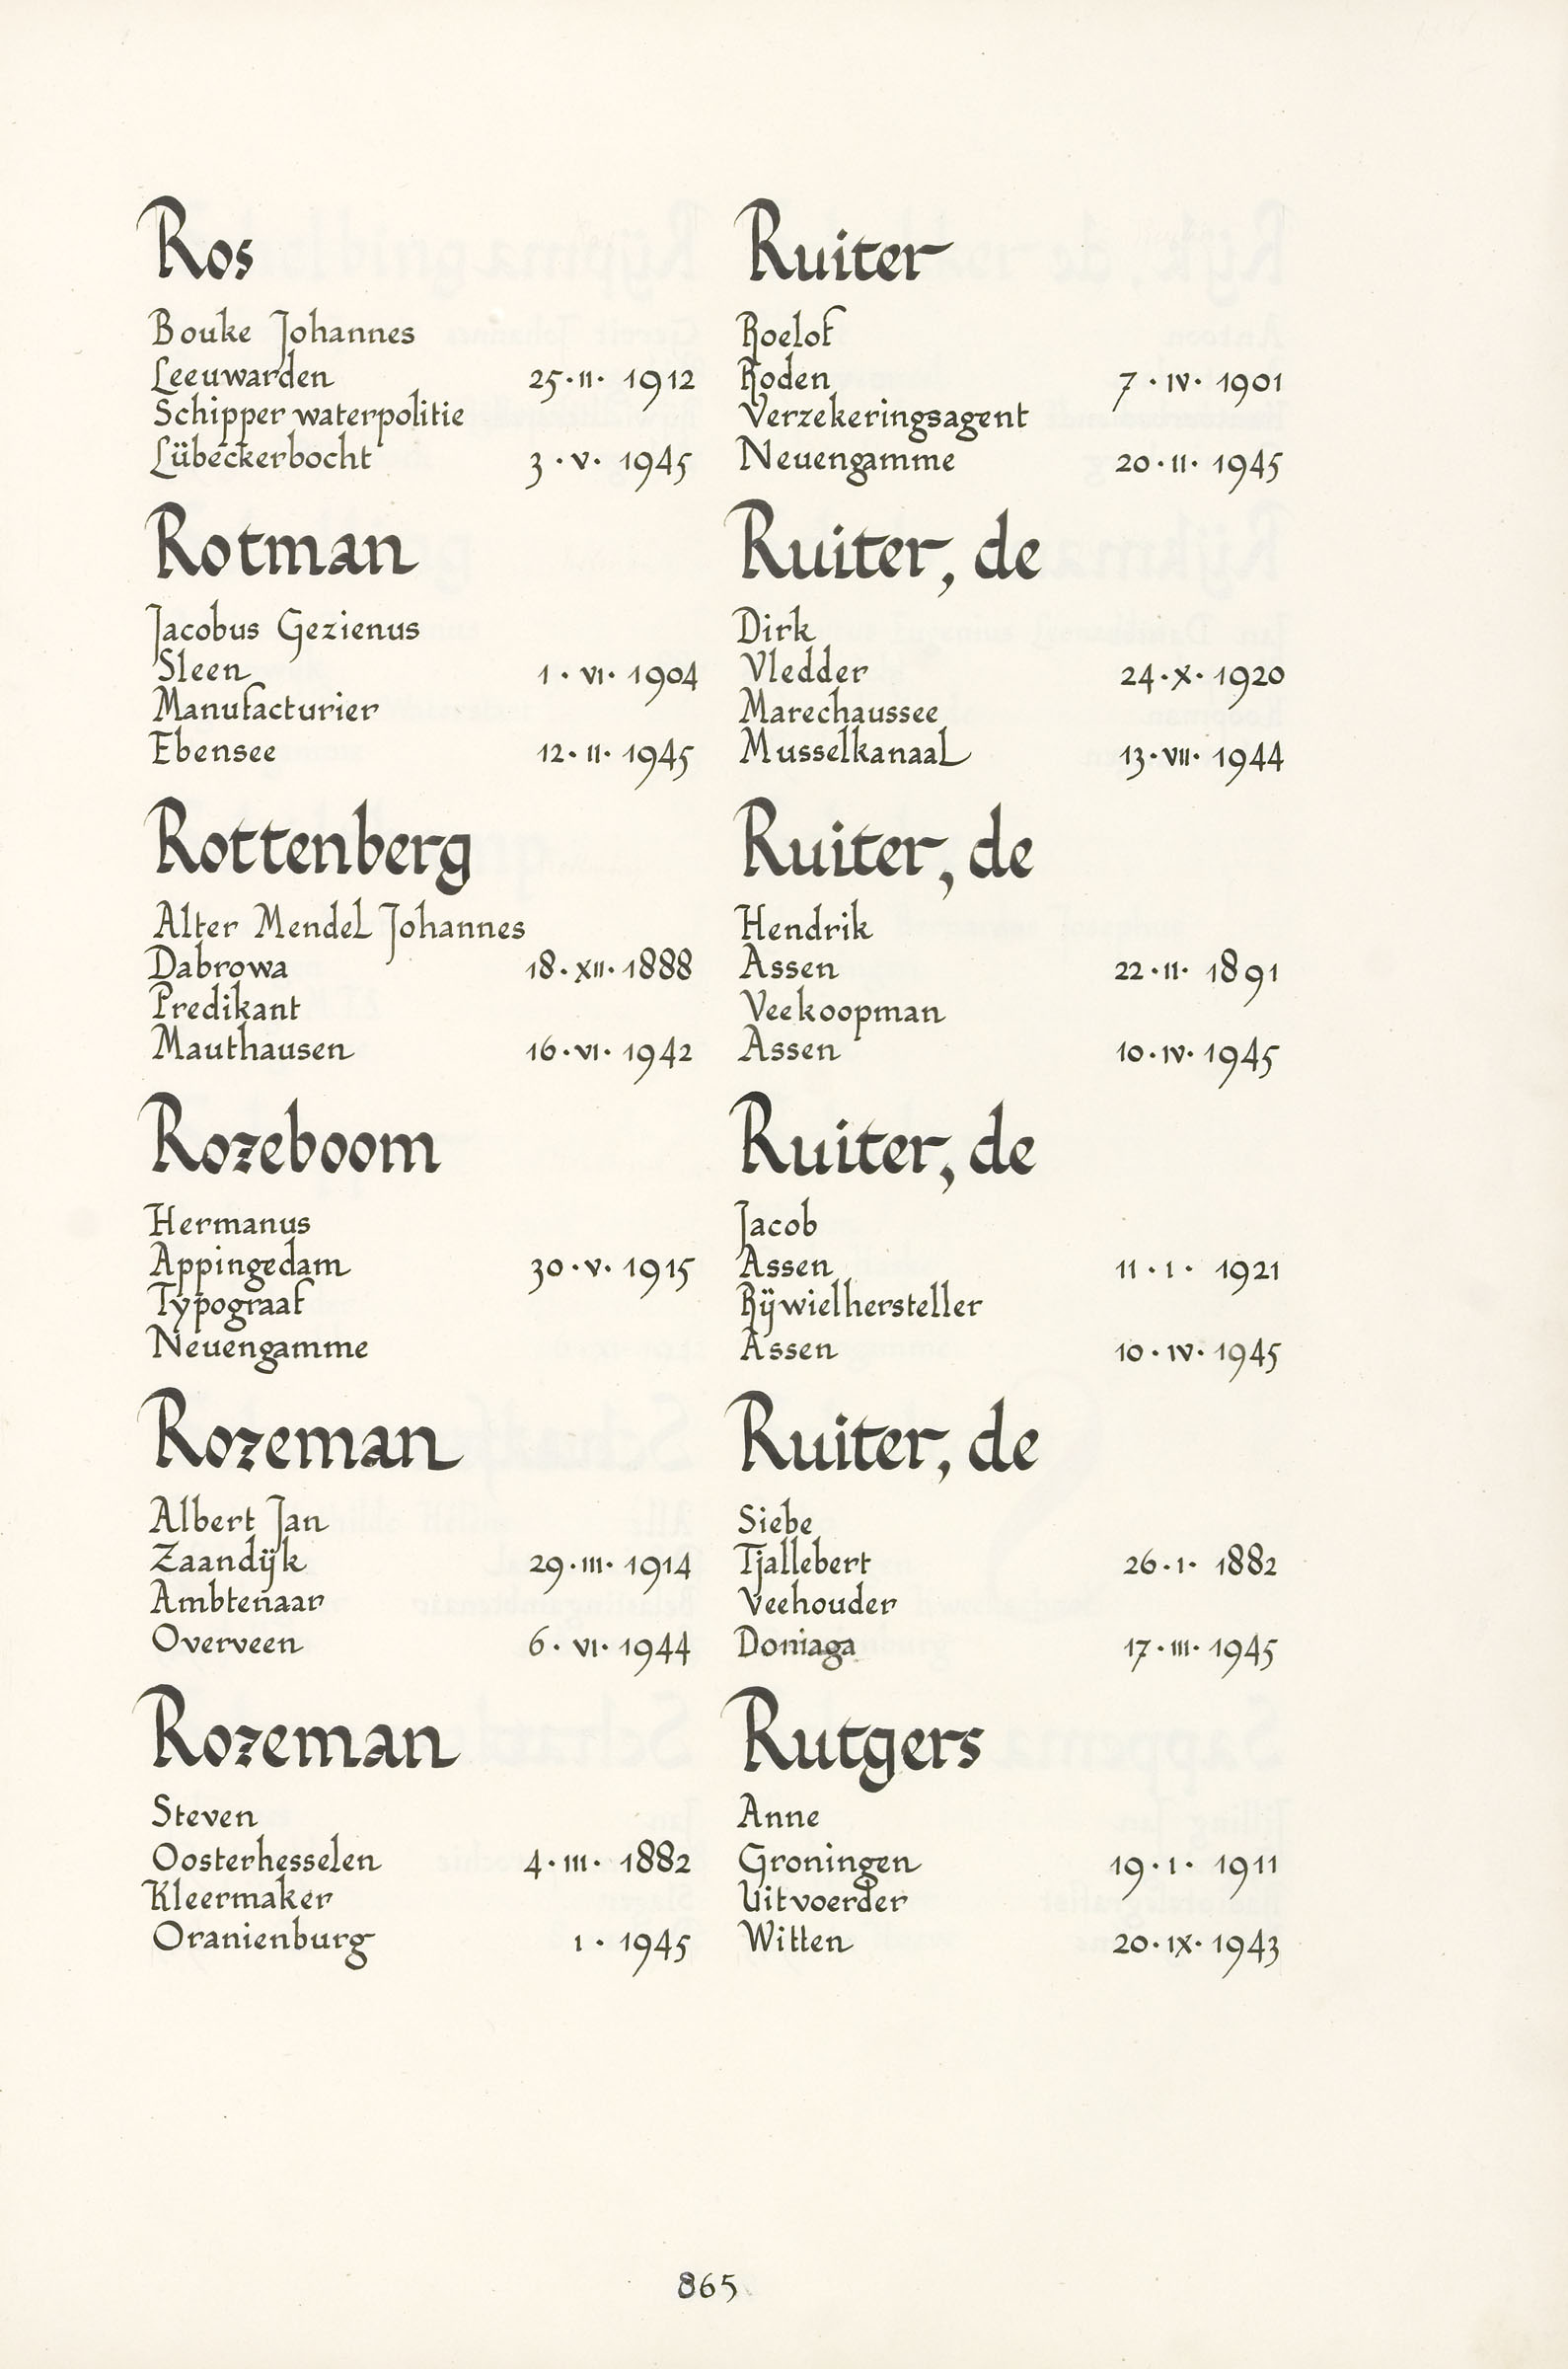 Ros
Bouke Johannes
Leeuwarden 25·II· 1912
Schipper waterpolitie
Lübeckerbocht 3·V· 1945
Rotman
Jacobus Gezienus
Sleen 1·VI· 1904
Manufacturier
Ebensee 12·II· 1945
Rottenberg
Alter Mendel Johannes
Dabrowa 18·XII·1888
Predikant
Mauthausen 16·VI· 1942
Rozeboom
Hermanus
Appingedam 30·V· 1915
Typograaf
Neuengamme
Rozeman
Albert Jan
Zaandijk 29·III· 1914
Ambtenaar
Overveen 6·VI· 1944
Rozeman
Steven
Oosterhesselen 4·III· 1882
Kleermaker
Oranienburg I· 1945
Ruiter
Roelof
Roden 7·IV· 1901
Verzekeringsagent
Neuengamme 20·II· 1945
Ruiter, de
Dirk
Vledder 24·X· 1920
Marechaussee
Musselkanaal 13·VII· 1944
Ruiter, de
Hendrik
Assen 22·II· 1891
Veekoopman
Assen 10·IV· 1945
Ruiter, de
Jacob
Assen 11·I· 1921
Rijwielhersteller
Assen 10·IV· 1945
Ruiter, de
Siebe
Tjallebert 26·I· 1882
Veehouder
Doniaga 17·III· 1945
Rutgers
Anne
Groningen 19·I· 1911
Uitvoerder
Witten 20·IX· 1943
865